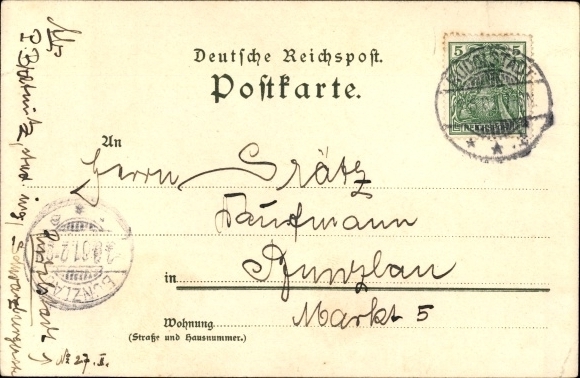 Deutsche Reichspost.
Postkarte.
5
RUDOLSTADT
An
Herrn Grätz
Kaufmann
in Bunzlau
Markt 5
Wohnung
(Straße und Hausnummer.)
BUNZLAU
Nº 27. II.